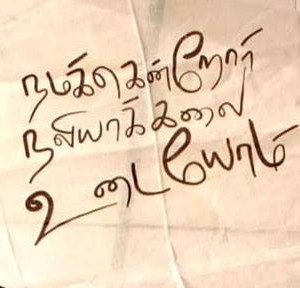 நமக்கென்றோர்
நலியாக்கலை
உடையோம்